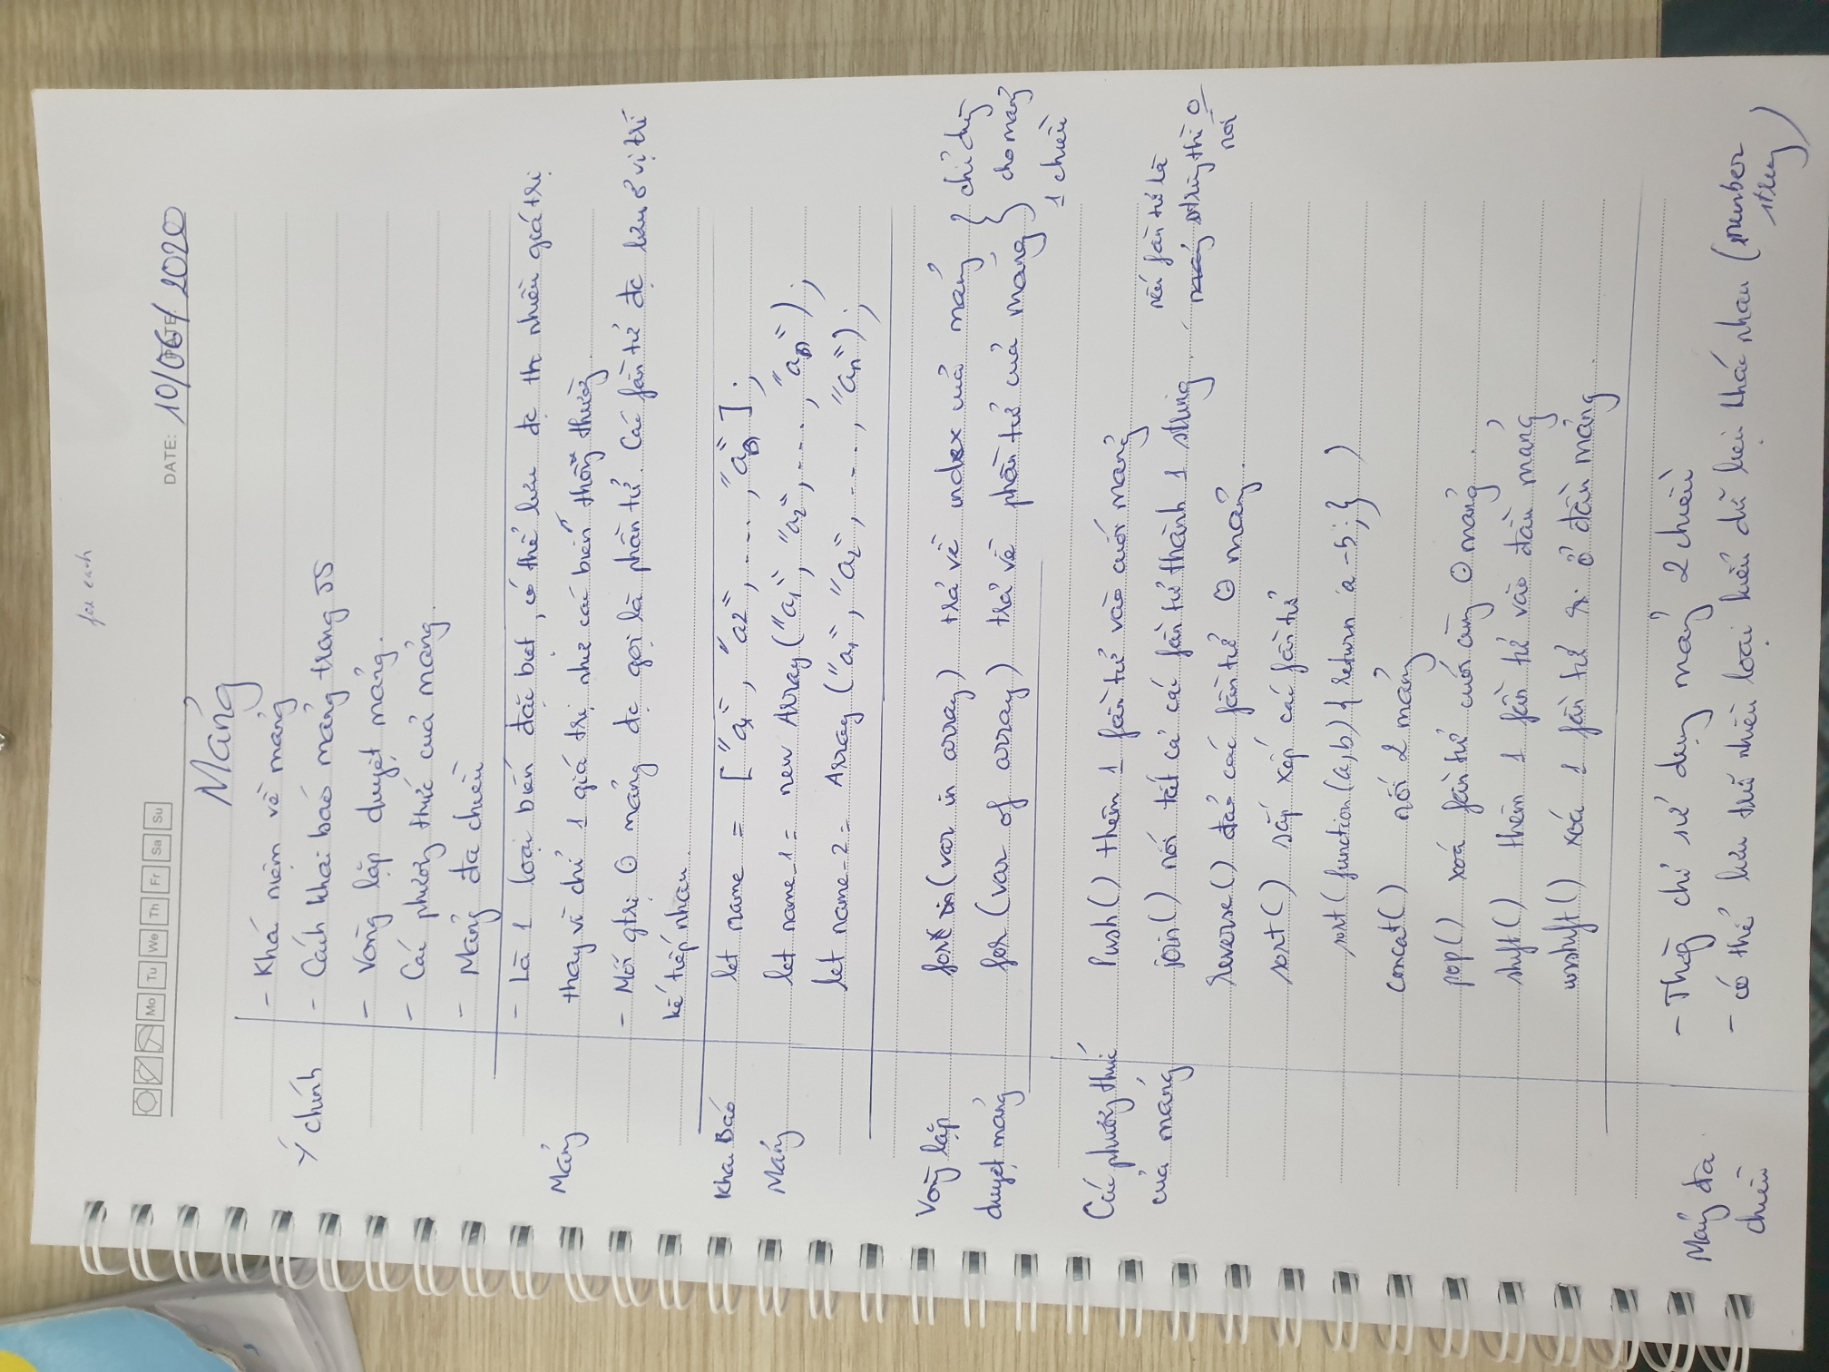 for each
Mo Tu We Th Fr Sa Su
DATE: 10/06/2020
Mảng
Ý chính
- Khá niệm về mảng
- Cách khai báo mảng trong JS
- Vòng lặp duyệt mảng.
- Các phương thức của mảng.
- Mảng đa chiều
Mảng
- Là 1 loại biến đặc biệt, có thể lưu đc nhiều giá trị
thay vì chỉ 1 giá trị như các biến thông thường
- Mỗi gtrị ʘ mảng đc gọi là phần tử. Các fần tử đc lưu ở vị trí
kế tiếp nhau.
Khai Báo
Mảng
let name = ["a1", "a2", ...., "an"];
let name_1 = new Array("a1", "a2", ...., "an");
let name_2 = Array ("a1", "a2", ...., "an");
Vòng lặp
duyệt mảng
for (var in array) trả về index của mảng
for (var of array) trả về phần tử của mảng
} chỉ dùng
cho mảng
1 chiều
Các phương thức
của mảng
Push() thêm 1 fần tử vào cuối mảng
join() nối tất cả các fần tử thành 1 string.
nếu fần tử là
string thì o
nối
reverse() đảo các fần tử ʘ mảng.
sort() sắp xếp các fần tử
sort(function(a,b){return a-b;})
concat() nối 2 mảng
pop() xoá fần tử cuối cùng ʘ mảng.
shift() thêm 1 fần tử vào đầu mảng
unshift() xoá 1 fần tử ở đầu mảng.
Mảng đa
chiều
- Thường chỉ sử dụng mảng 2 chiều
- có thể lưu trữ nhiều loại kiểu dữ liệu khác nhau (number
string)